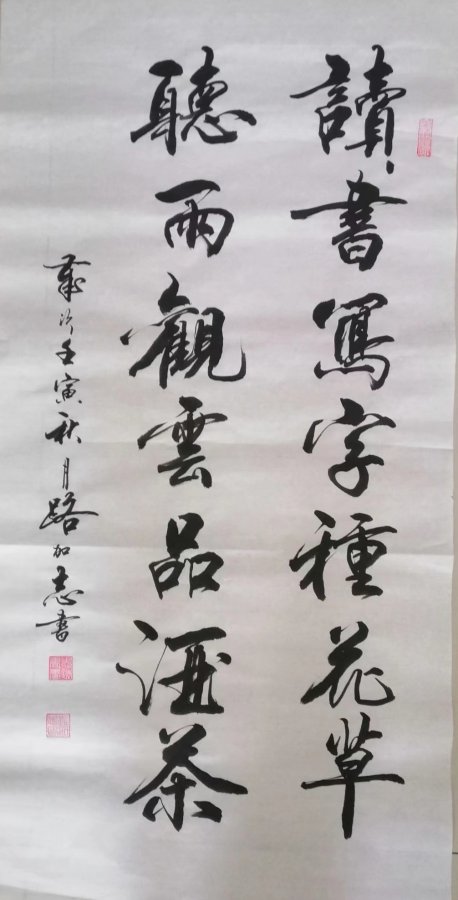 讀書寫字種花草
聽雨觀雲品酒茶
歲次壬寅秋月路加志書